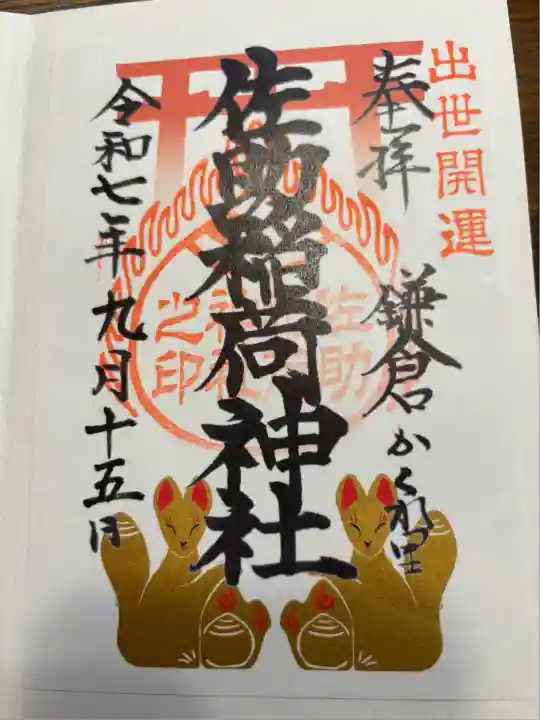 出世開運
奉拝
鎌倉かくれ里
佐助稲荷神社
佐助
稲荷
神社
之印
令和七年九月十五日